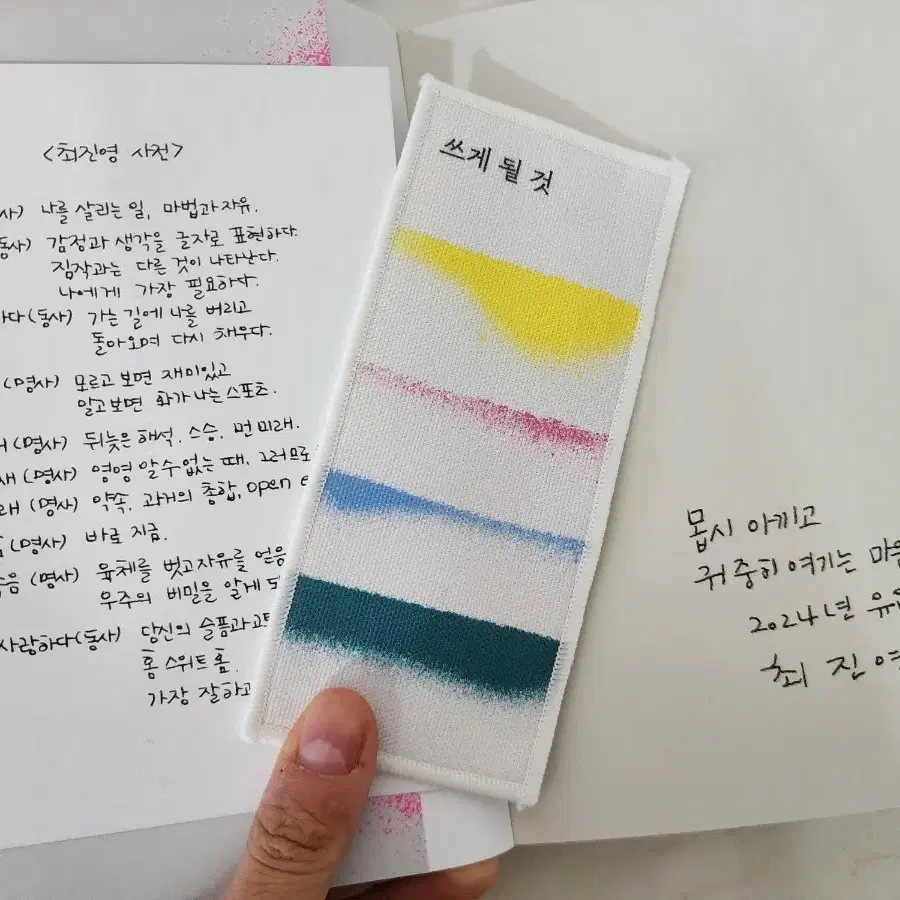 <최진영 사전>
나를 살리는 일, 마법과 자유.
감정과 생각을 글자로 표현하다.
짐작과는 다른 것이 나타난다.
나에게 가장 필요하다.
(동사) 가는 길에 나를 버리고
돌아오며 다시 채우다.
(명사) 모르고 보면 재미있고
알고 보면 화가 나는 스포츠.
(명사) 뒤늦은 해석. 스승. 먼 미래.
(명사) 영영 알 수 없는 때. 그러므로
(명사) 약속. 과거의 총합, open
(명사) 바로 지금.
(명사) 육체를 벗고 자유를 얻음
우주의 비밀을 알게 되
사랑하다(동사) 당신의 슬픔과 고
홈 스위트 홈.
가장 잘하고
쓰게 될 것
몹시 아끼고
귀중히 여기는 마음
2024년
최진영